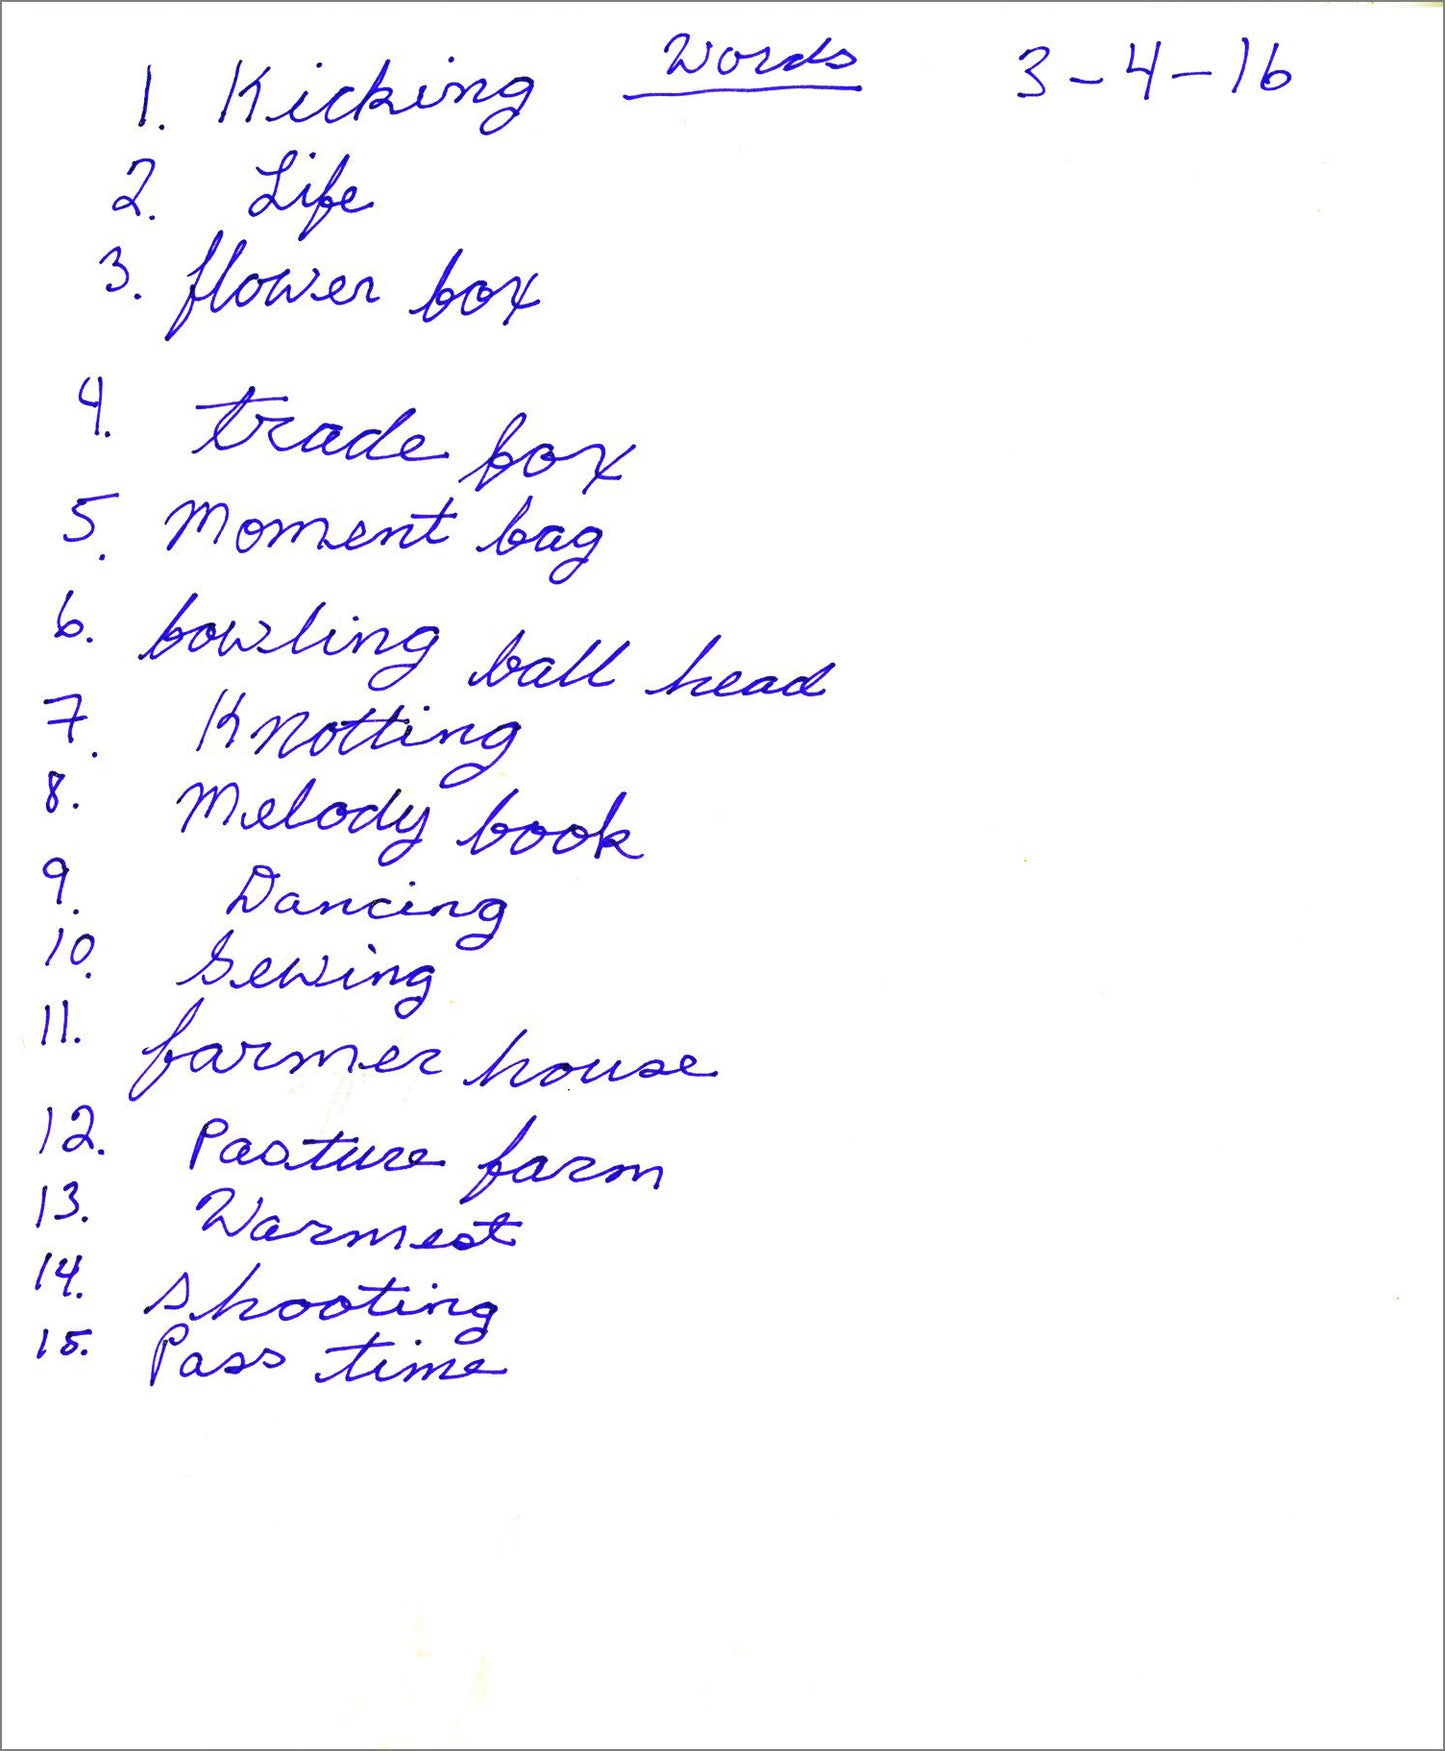 Words 3-4-16
1. Kicking
2. Life
3. flower box
4. trade box
5. Moment bag
6. bowling ball head
7. Knotting
8. Melody book
9. Dancing
10. Sewing
11. farmer house
12. Pasture farm
13. Warmest
14. shooting
15. Pass time